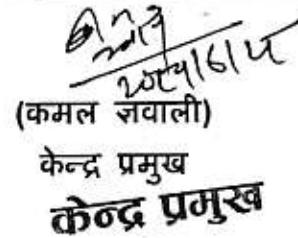 (कमल ज्ञवाली)
केन्द्र प्रमुख
केन्द्र प्रमुख